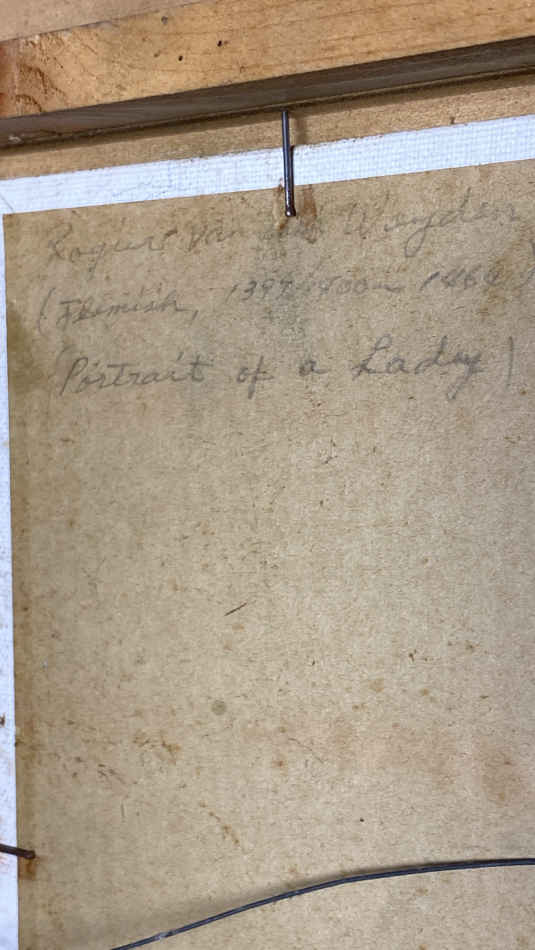 Rogier Van der Weyden
(Flemish, 1399/1400 - 1464)
(Portrait of a Lady)